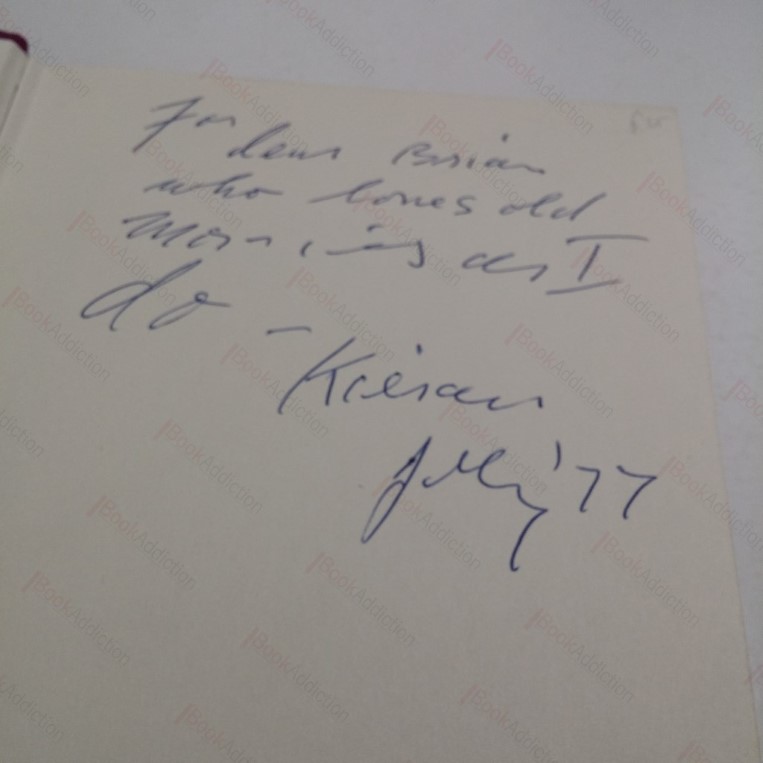 For
dear Brian
who loves old
Morris as I
do -
Kieran
July '77
BookAddiction